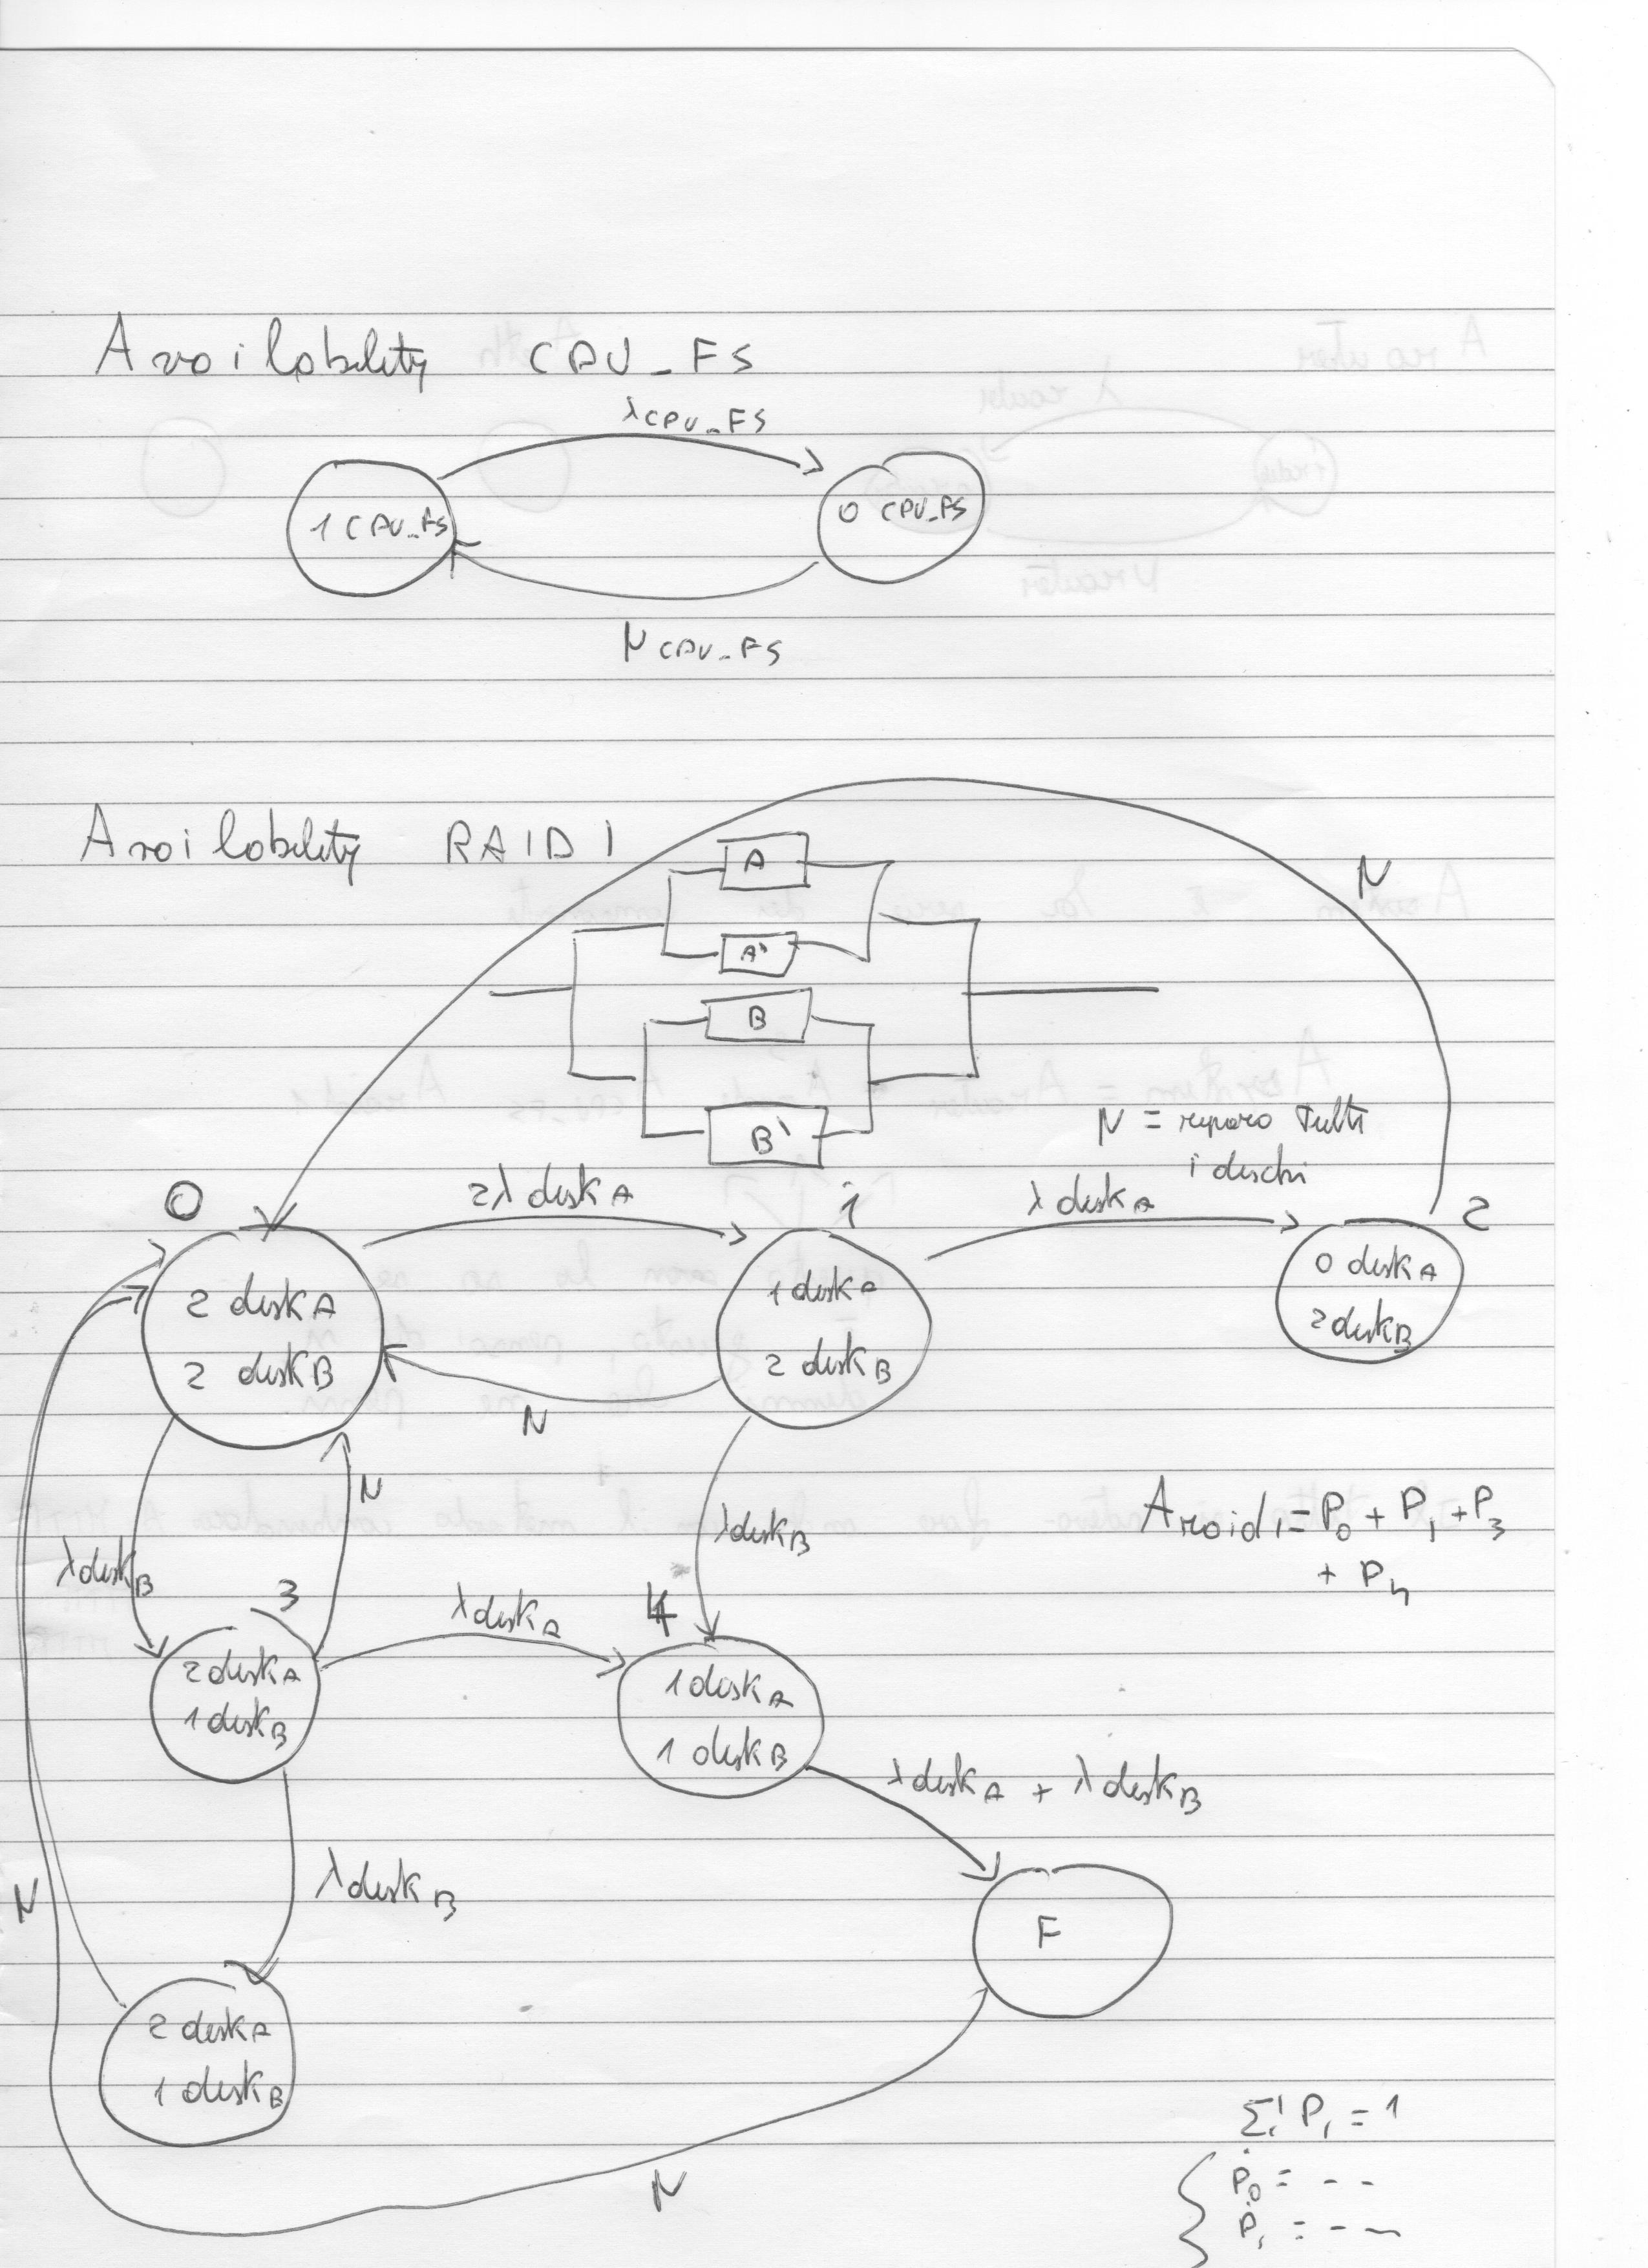 Availability CPU_FS
λCPU_FS
1 CPU_FS
0 CPU_FS
μCPU_FS
Availability RAID 1
A
A'
B
B'
μ
μ = riparo tutti
i dischi
0
2λ disk A
1
λ disk A
2
2 disk A
2 disk B
1 disk A
2 disk B
0 disk A
2 disk B
μ
μ
λ disk B
λ disk B
Araid1 = P0 + P1 + P3
+ P4
3
λ disk A
4
2 disk A
1 disk B
1 disk A
1 disk B
λ disk A + λ disk B
λ disk B
μ
F
2 disk A
1 disk B
μ
Σi Pi = 1
Ṗ0 = - -
Ṗ1 = - -